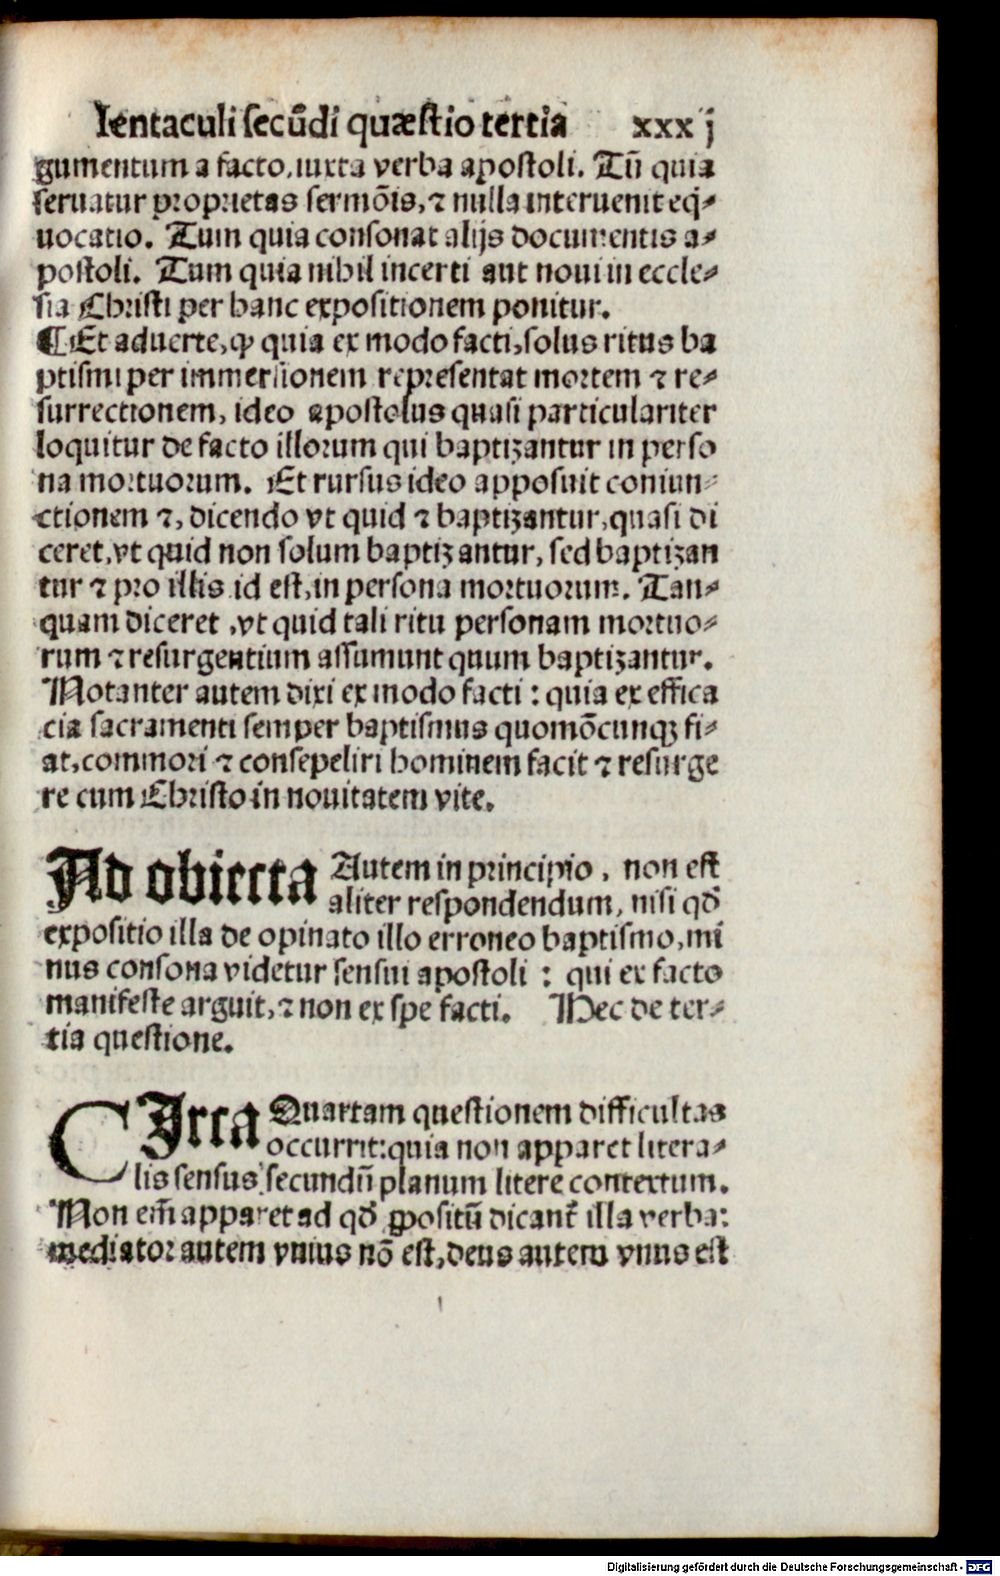 Ientaculi secūdi quæstio tertia xxxj
gumentum a facto, iuxta verba apostoli. Tū quia
seruatur proprietas sermōis, ⁊ nulla interuenit eq̇⸗
uocatio. Tum quia consonat alijs documentis a⸗
postoli. Tum quia nihil incerti aut noui in eccle⸗
sia Christi per hanc expositionem ponitur.
¶Et aduerte, ꝙ quia ex modo facti, solus ritus ba
ptismi per immersionem representat mortem ⁊ re⸗
surrectionem, ideo apostolus quasi particulariter
loquitur de facto illorum qui baptizantur in perso
na mortuorum. Et rursus ideo apposuit coniun⸗
ctionem ⁊, dicendo vt quid ⁊ baptizantur, quasi di
ceret, vt quid non solum baptizantur, sed baptizan
tur ⁊ pro illis id est, in persona mortuorum. Tan⸗
quam diceret, vt quid tali ritu personam mortuo⸗
rum ⁊ resurgentium assumunt quum baptizantur.
Notanter autem dixi ex modo facti: quia ex effica
cia sacramenti semper baptismus quomōcunqꝫ fi⸗
at, commori ⁊ consepeliri hominem facit ⁊ resurge
re cum Christo in nouitatem vite.
Ad obiecta Autem in principio, non est
aliter respondendum, nisi qđ
expositio illa de opinato illo erroneo baptismo, mi
nus consona videtur sensui apostoli: qui ex facto
manifeste arguit, ⁊ non ex spe facti. Hec de ter⸗
tia questione.
CIrca Quartam questionem difficultas
occurrit: quia non apparet litera⸗
lis sensus secundū planum litere contextum.
Non em̄ apparet ad qđ ꝓpositū dicant᷑ illa verba:
mediator autem vnius nō est, deus autem vnus est
Digitalisierung gefördert durch die Deutsche Forschungsgemeinschaft - DFG